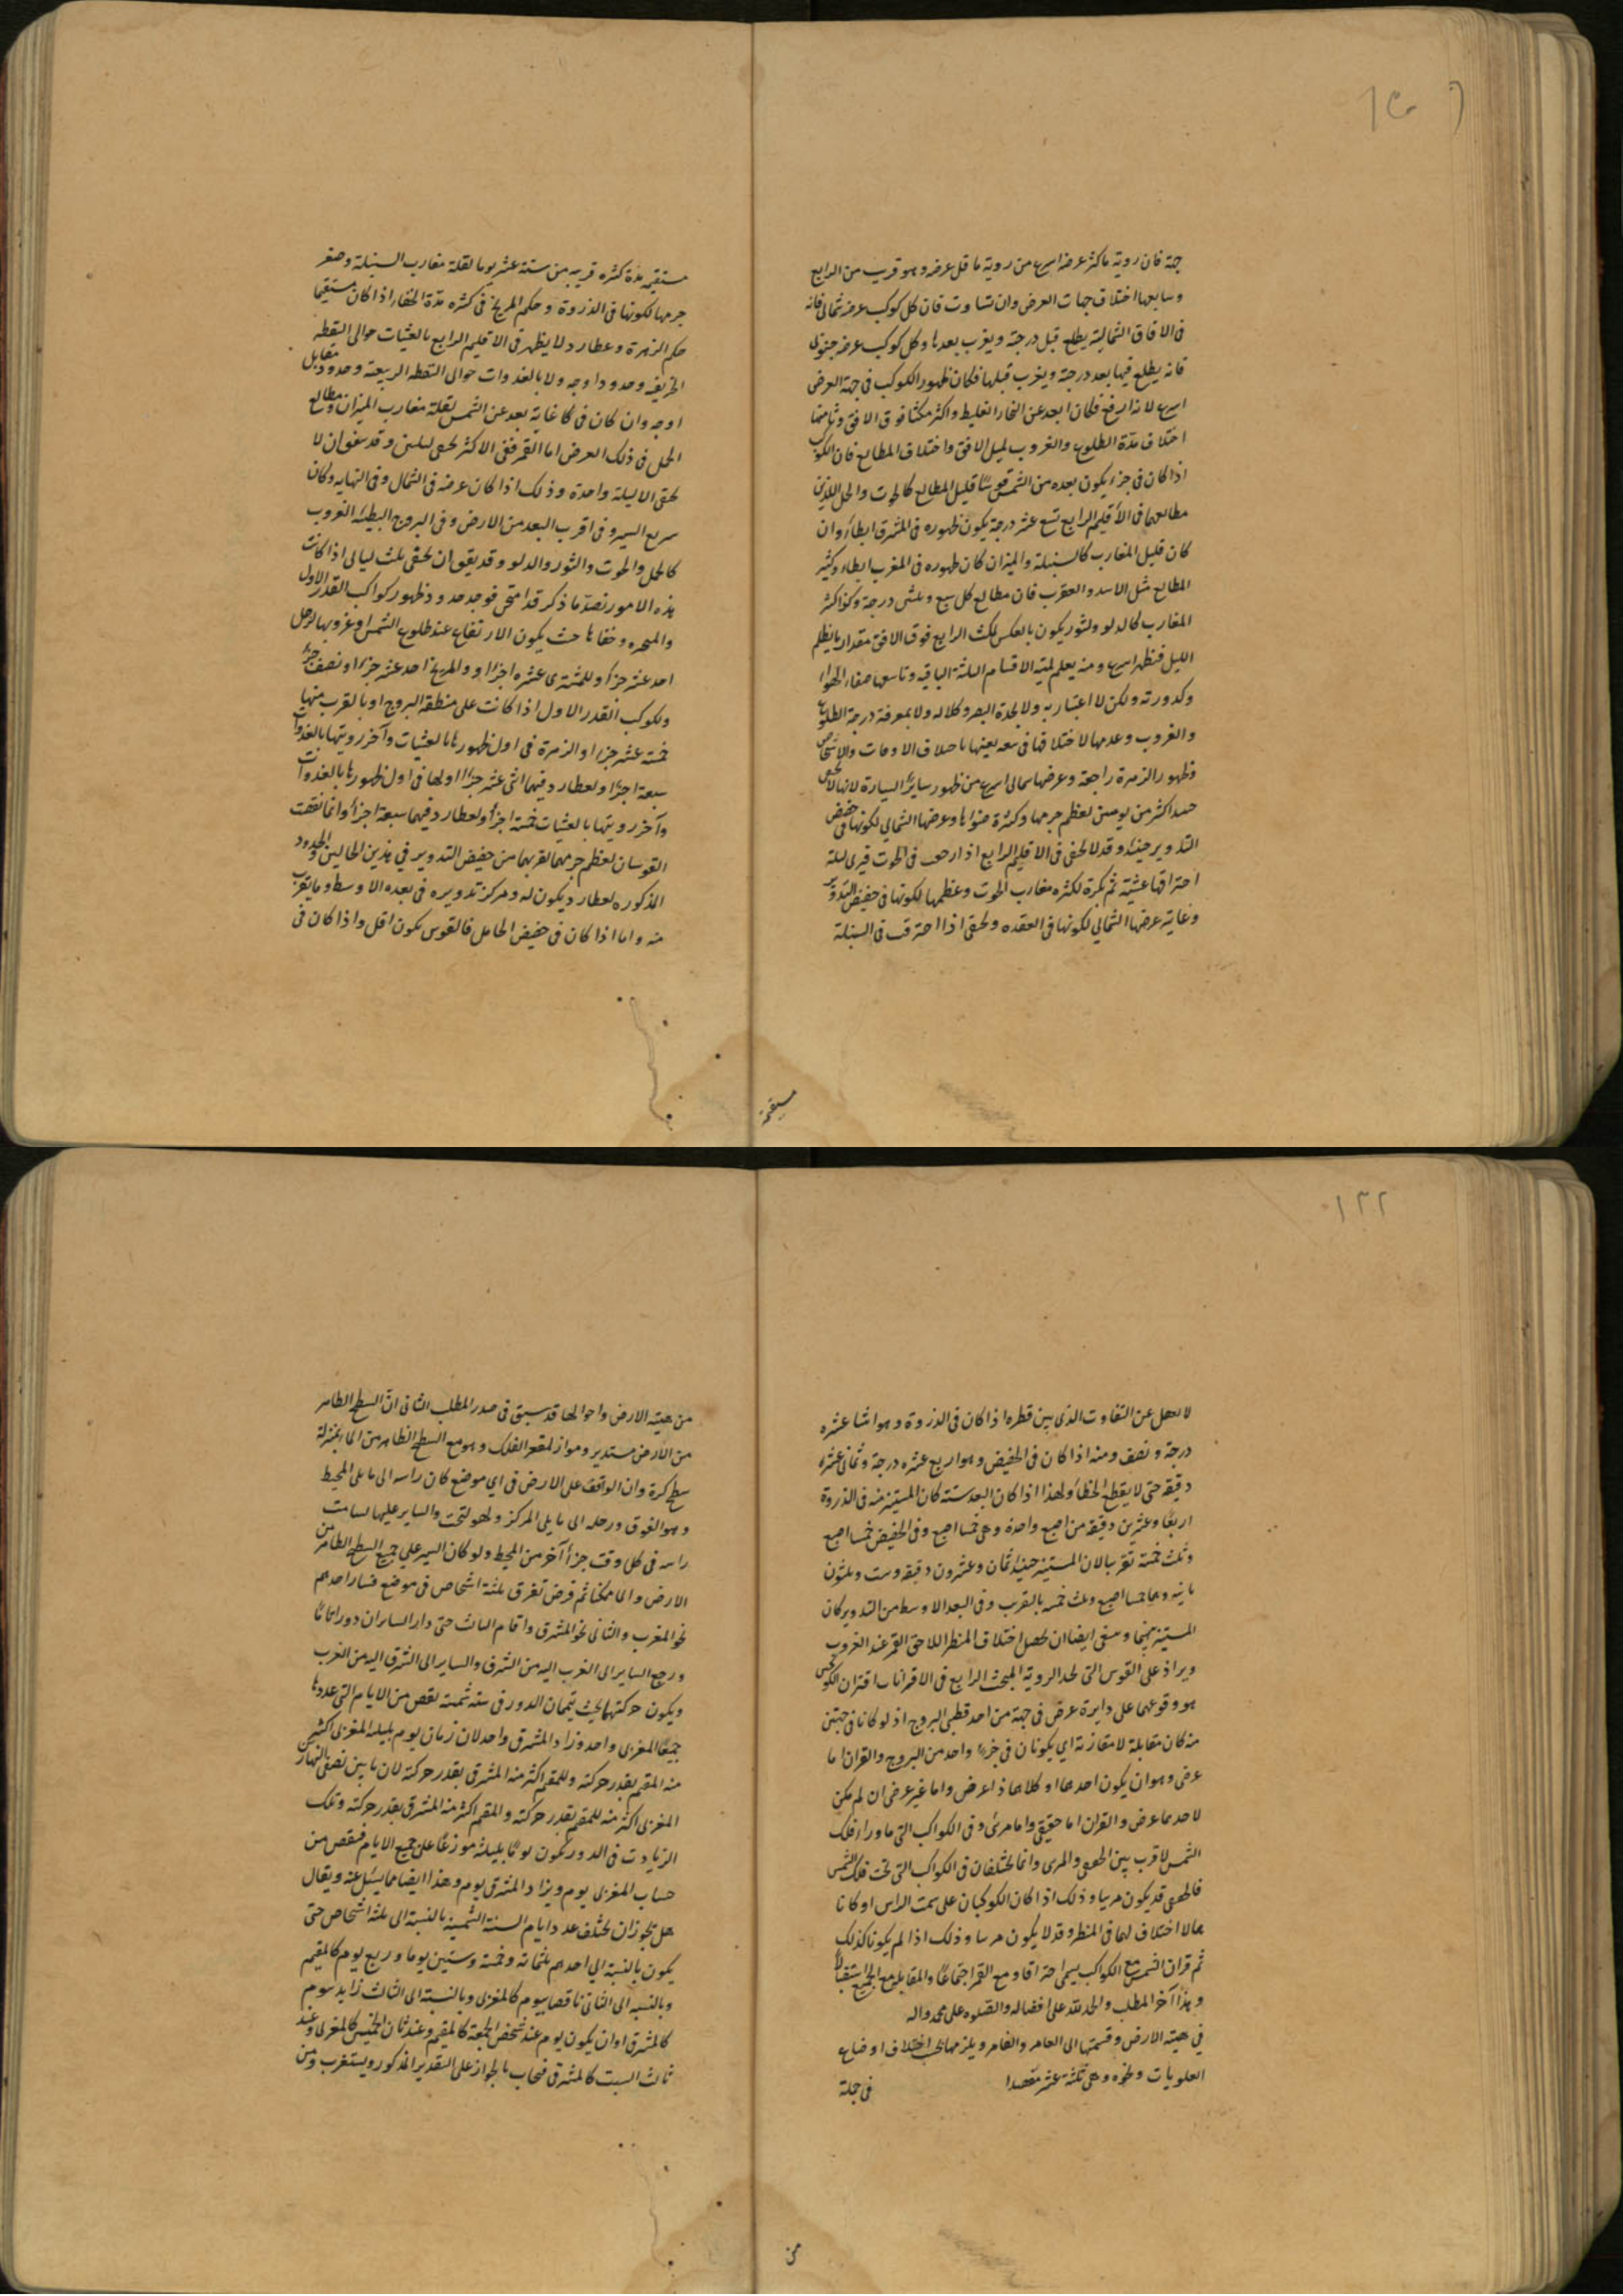 جهة فان روية ما كثر عرضه اسرع من روية ما قل عرضه وهو قريب من الرابع
وسابعها اختلاف جهات العرض وان تساوت فان كل كوكب عرضه شمالى فانه
فى الافاق الشمالية يطلع قبل درجته ويغرب بعدها وكل كوكب عرضه جنوبى
فانه يطلع فيها بعد درجته ويغرب قبلها فكان ظهور الكوكب فى جهة العرض
اسرع لانه ارفع فكان ابعد عن البخار الغليظ واكثر مكثا فوق الافق وثامنها
اختلاف مدة الطلوع والغروب لميل الافق واختلاف المطالع فان الكوكب
اذا كان فى جزء يكون بعده من الشمس قوسا قليل المطالع كالحوت والحمل اللذين
مطالعهما فى الاقليم الرابع تسع عشر درجة يكون ظهوره فى المشرق ابطاء وان
كان قليل المغارب كالسنبلة والميزان كان ظهوره فى المغرب ابطاء وكثير
المطالع مثل الاسد والعقرب فان مطالع كل سبع وثلثى درجة وكذا كثير
المغارب كالدلو والثور يكون بالعكس لمكث الرابع فوق الافق مقدار ما يظلم
الليل فيظهر اسرع ومنه يعلم لمية الاقسام الثلثة الباقية وتاسعها صفاء الهواء
وكدورته ولكن لا اعتبار به ولا لحدة البصر وكلاله ولا بمعرفة درجة الطلوع
والغروب وعدمها لاختلافها فى بقعة بعينها باختلاف الاوقات والاشخاص
وظهور الزهرة راجعة وعرضها شمالى اسرع من ظهور ساير السيارة لانها لا تخفى
حينئذ اكثر من يومين لعظم جرمها وكثرة ضوئها وعرضها الشمالي لكونها فى حضيض
التدوير حينئذ وقد لا تخفى فى الاقليم الرابع اذا رجعت فى الحوت فترى ليلة
احتراقها عشية ثم بكرة لكثرة مغارب الحوت وعظمها لكونها فى حضيض التدوير
وغاية عرضها الشمالي لكونها فى العقده وتخفى اذا احترقت فى السنبلة
مستقيمة
مستقيمه مدة كثيره قريبه من ستة عشر يوما لقلة مغارب السنبلة وصغر
جرمها لكونها فى الذروة وحكم المريخ فى كثره مدة الخفاء اذا كان مستقيما
حكم الزهرة وعطارد لا يظهر فى الاقليم الرابع بالعشيات حوالى النقطه
الخريفيه وحدود اوجه ولا بالغدوات حوالى النقطه الربيعية وحدود مقابل
اوجه وان كان فى غاية بعد عن الشمس لقلة مغارب الميزان ومطالع
الحمل فى ذلك العرض اما القمر ففى الاكثر يخفى ليلتين وقد يتفق ان لا
يخفى الا ليلة واحدة وذلك اذا كان عرضه فى الشمال وفى النهايه وكان
سريع السير وفى اقرب البعد من الارض وفى البروج البطيئة الغروب
كالحمل والحوت والثور والدلو وقد يتفق ان يخفى ثلث ليالى اذا كانت
هذه الامور بضد ما ذكر قد امتحن فوجد حدود ظهور كواكب القدر الاول
والمتحيره وخفائها حيث يكون الارتفاع عند طلوع الشمس او غروبها لزحل
احد عشر جزأ وللمشترى عشره اجزاء وللمريخ احد عشر جزءا ونصف جزء
ولكوكب القدر الاول اذا كانت على منطقة البروج او بالقرب منها
خمسة عشر جزءا وللزهرة فى اول ظهورها بالعشيات وآخر رويتها بالغدوات
سبعة اجزاء ولعطارد فيهما اثنى عشر جزءا ولها فى اول ظهورها بالغدوات
وآخر رويتها بالعشيات خمسة اجزأ ولعطارد فيهما سبعة اجزأ وانما نقصت
القوسان لعظم جرمهما لقربهما من حضيض التدوير في هذين الحالين والحدود
المذكوره لعطارد يكون له ومركز تدويره فى بعده الاوسط وما يقرب
منه واما اذا كان فى حضيض الحامل فالقوس يكون اقل واذا كان فى
١٣٢
لا يعقل عن التفاوت الذى بين قطره اذا كان فى الذروة وهو اثنا عشره
درجة ونصف ومنه اذا كان فى الحضيض وهو اربع عشره درجة وثمانى عشرة
دقيقه حتى لا يقطع الخطأ ولهذا اذا كان البعد سته كان المستنير منه فى الذروة
اربعا وعشرين دقيقه من اصبع واحدة وهى خمسا اصبع وفى الحضيض خمسا اصبع
وثلث خمسة تقريبا لان المستنير حينئذ ثمان وعشرون دقيقه وست وثلثون
ثانيه وهما خمسا اصبع وثلث خمسه بالتقريب وفى البعد الاوسط من التدوير كان
المستنير بينهما وينبغى ايضا ان يحصل اختلاف المنظر اللاحق للقمر عند الغروب
ويزاد على القوس التى لحد الروية المبحث الرابع فى الاقترانات اقتران الكوكبين
هو وقوعهما على دايرة عرض فى جهة من احد قطبى البروج اذ لو كانا فى جهتين
منه كان مقابلة لا مقارنة اي يكونان فى جزء واحد من البروج والقران اما
عرضى وهو ان يكون احدهما او كلاهما ذا عرض واما غير عرضى ان لم يكن
لاحدهما عرض والقران اما حقيقى واما مرئى وفى الكواكب التى ما وراء فلك
الشمس لا فرق بين الحقيقى والمرى وانما يختلفان فى الكواكب التى تحت فلك الشمس
فالحقيقى قد يكون مريا وذلك اذا كان الكوكبان على سمت الراس او كانا
مما لا اختلاف لهما فى المنظر وقد لا يكون مريا وذلك اذا لم يكونا كذلك
ثم قران الشمس مع الكواكب يسمى احتراقا ومع القمر اجتماعا والمقابلة مع الجميع استقبالا
وهذا آخر المطلب والحمد لله على افضاله والصلوه على محمد واله
في هيئة الارض وقسمتها الى العامر والغامر ويلزمها بحسب اختلاف اوضاع
العلويات ونحوه وهى ثلثة عشر مقصدا فى جملة
من
من هيئة الارض واحوالها قد سبق فى صدر المطلب الثانى ان السطح الظاهر
من الأرض مستدير وموازٍ لمقعر الفلك وهو مع السطح الظاهر من الماء بمنزلة
سطح كرة وان الواقف على الارض فى اي موضع كان راسه الى ما يلى المحيط
وهو الفوق ورجله الى ما يلى المركز وهو التحت والساير عليها يسامت
راسه فى كل وقت جزأ آخر من المحيط ولو كان السير على جميع السطح الظاهر من
الارض والماء ممكنا ثم فرض تفرق ثلثة اشخاص فى موضع فسار احدهم
نحو المغرب والثانى نحو المشرق واقام الثالث حتى دار السايران دورا تاما
ورجع الساير الى الغرب اليه من الشرق والساير الى الشرق اليه من الغرب
ويكون حركتهما بحيث يتمان الدور فى سنة شمسية نقص من الايام التى عددها
جميعا المغربى واحد وزاد المشرقى واحد لان زمان يوم بليله المغربى اكثر من
منه المقيم بقدر حركته وللمقيم اكثر منه المشرقى بقدر حركته لان ما بين نصفى النهار
المغربى اكثر منه للمقيم بقدر حركته والمقيم اكثر منه المشرقى بقدر حركته وتلك
الزيادت فى الدور تكون يوما بليلته موزعا على جميع الايام فينقص من
حساب المغربى يوم ويزاد المشرقى يوم وهذا ايضا مما يسئل عنه ويقال
هل يجوز ان يختلف عدد ايام السنة الشمسية بالنسبة الى ثلثة اشخاص حتى
يكون بالنسبة الى احدهم ثلثمائه وخمسة وستين يوما وربع يوم كالمقيم
وبالنسبه الى الثانى ناقصا بيوم كالمغربى وبالنسبة الى الثالث زايد بيوم
كالمشرقى او ان يكون يوم عند شخص الجمعة كالمقيم وعند ثان الخميس كالمغربى وعند
ثالث السبت كالمشرقى فيجاب بالجواز على التقدير المذكور ويستغرب ومن